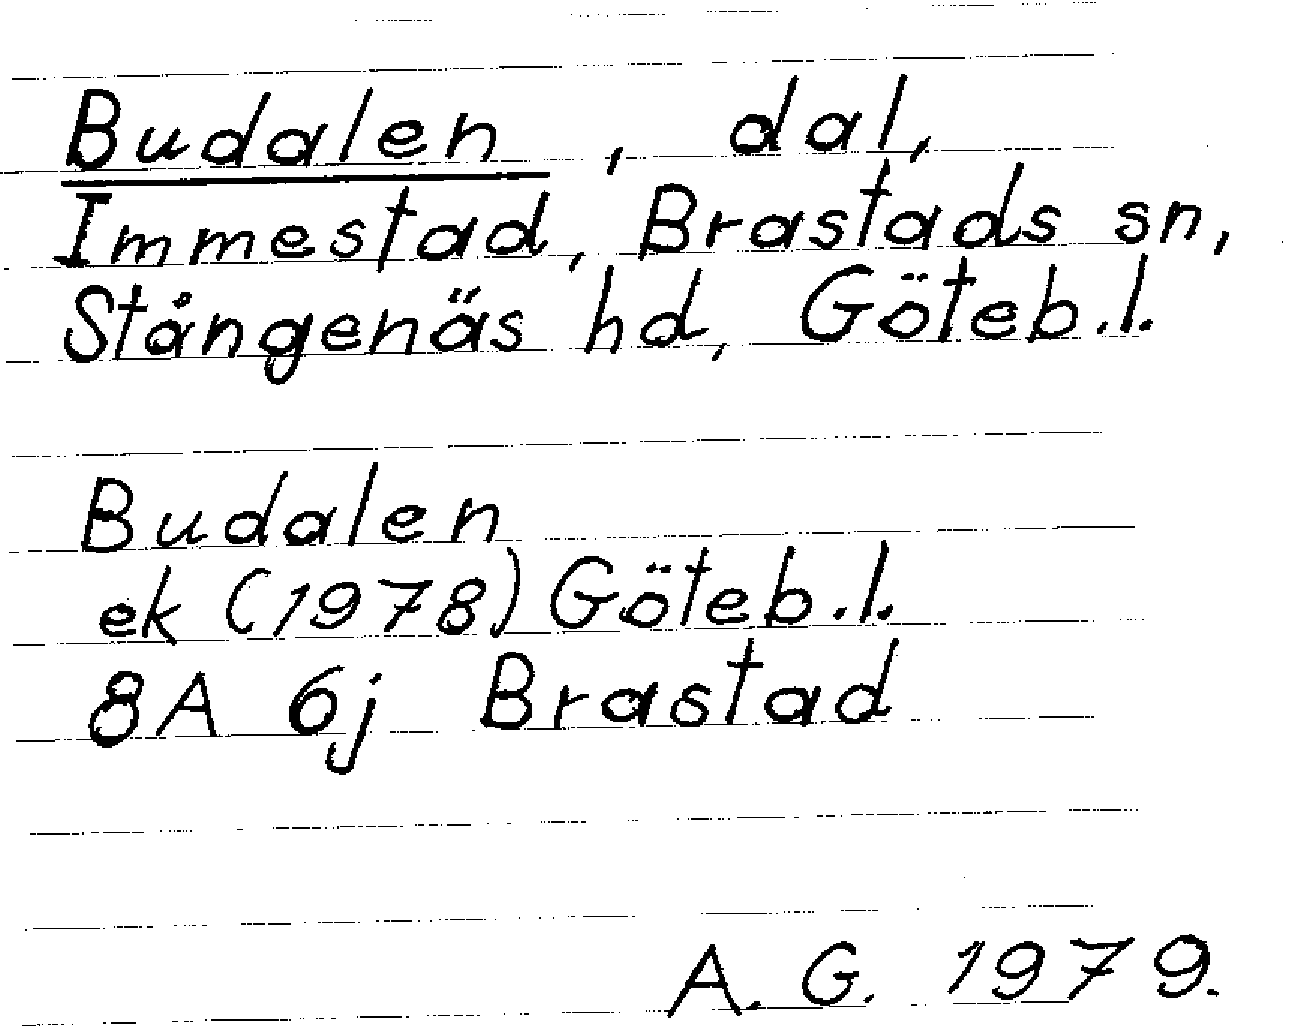 Budalen, dal,
Immestad, Brastads sn,
Stångenäs hd, Göteb.l.
Budalen
ek (1978) Göteb.l.
8A 6j Brastad
A.G. 1979.